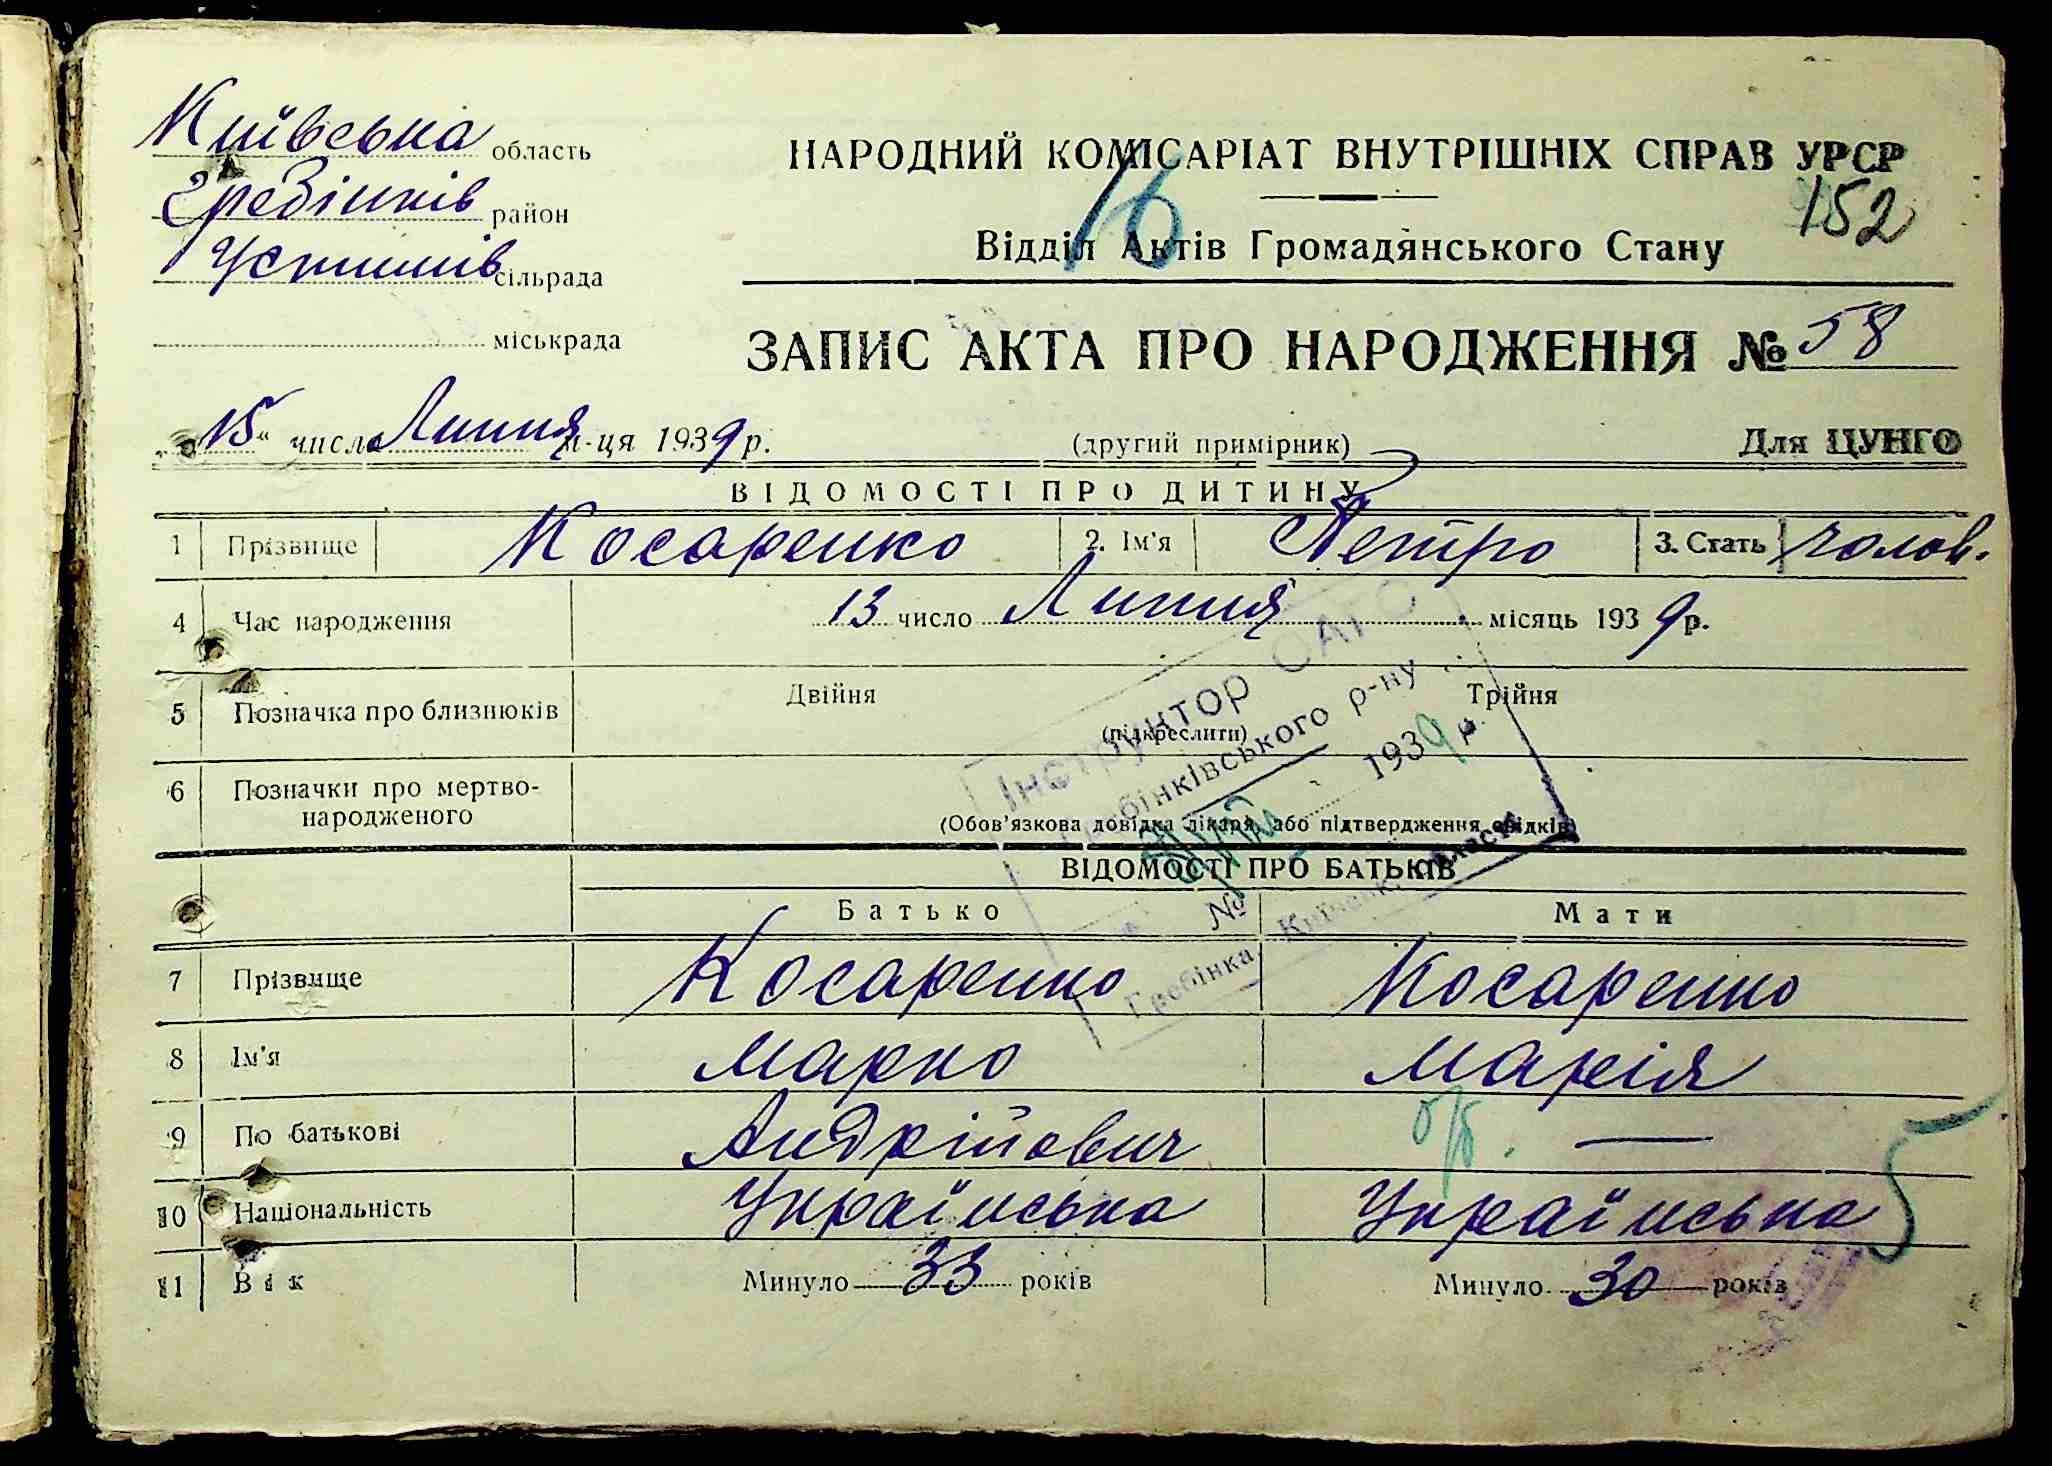 Київська область
Гребінків район
Устимів сільрада
міськрада
НАРОДНИЙ КОМІСАРІАТ ВНУТРІШНІХ СПРАВ УРСР
16
152
Відділ Актів Громадянського Стану
ЗАПИС АКТА ПРО НАРОДЖЕННЯ № 58
„15“ число Липня м-ця 1939 р.
(другий примірник)
Для ЦУНГО
ВІДОМОСТІ ПРО ДИТИНУ
1 Прізвище Косаренко 2. Ім'я Петро 3. Стать чолов.
4 Час народження 13 число Липня місяць 1939 р.
5 Позначка про близнюків Двійня Трійня
(підкреслити)
6 Позначки про мертво-
народженого
(Обов'язкова довідка лікаря, або підтвердження свідків)
Інструктор ОАГС
Гребінківського р-ну
1939 р.
№
Гребінка, Київськ. області
ВІДОМОСТІ ПРО БАТЬКІВ
Батько Мати
7 Прізвище Косаренко Косаренко
8 Ім'я Марко Марія
9 По батькові Андрійович б/б. —
10 Національність Українська Українська
5
11 Вік Минуло 33 років Минуло 30 років